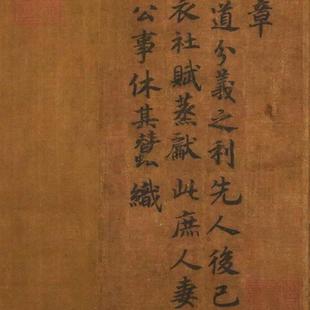 章
道分義之利先人後己
衣社賦蒸獻此庶人妻
公事休其蠶織